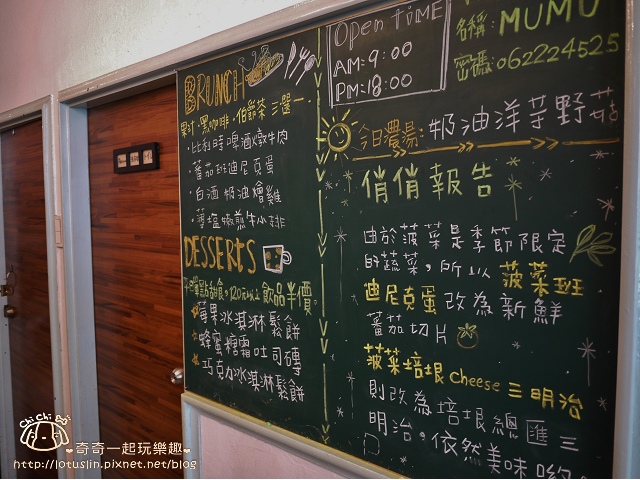 BRUNCH
果汁·黑咖啡·伯爵茶 三選一
·比利時啤酒燉牛肉
·蕃茄班迪尼克蛋
·白酒奶油燴雞
·薄鹽嫩煎牛小排
DESSERTS
平日單點甜食,120元以上飲品半價。
莓果冰淇淋鬆餅
蜂蜜糖霜吐司磚
巧克力冰淇淋鬆餅
Open TIME
AM:9:00
PM:18:00
名稱:MUMU
密碼:062224525
今日濃湯:奶油洋芋野菇
俏俏報告
由於菠菜是季節限定
的蔬菜,所以菠菜班
迪尼克蛋改為新鮮
蕃茄切片
菠菜培根cheese三明治
則改為培根總匯三
明治。依然美味喲。
Chi Chi BÖ
奇奇一起玩樂趣
http://lotuslin.pixnet.net/blog